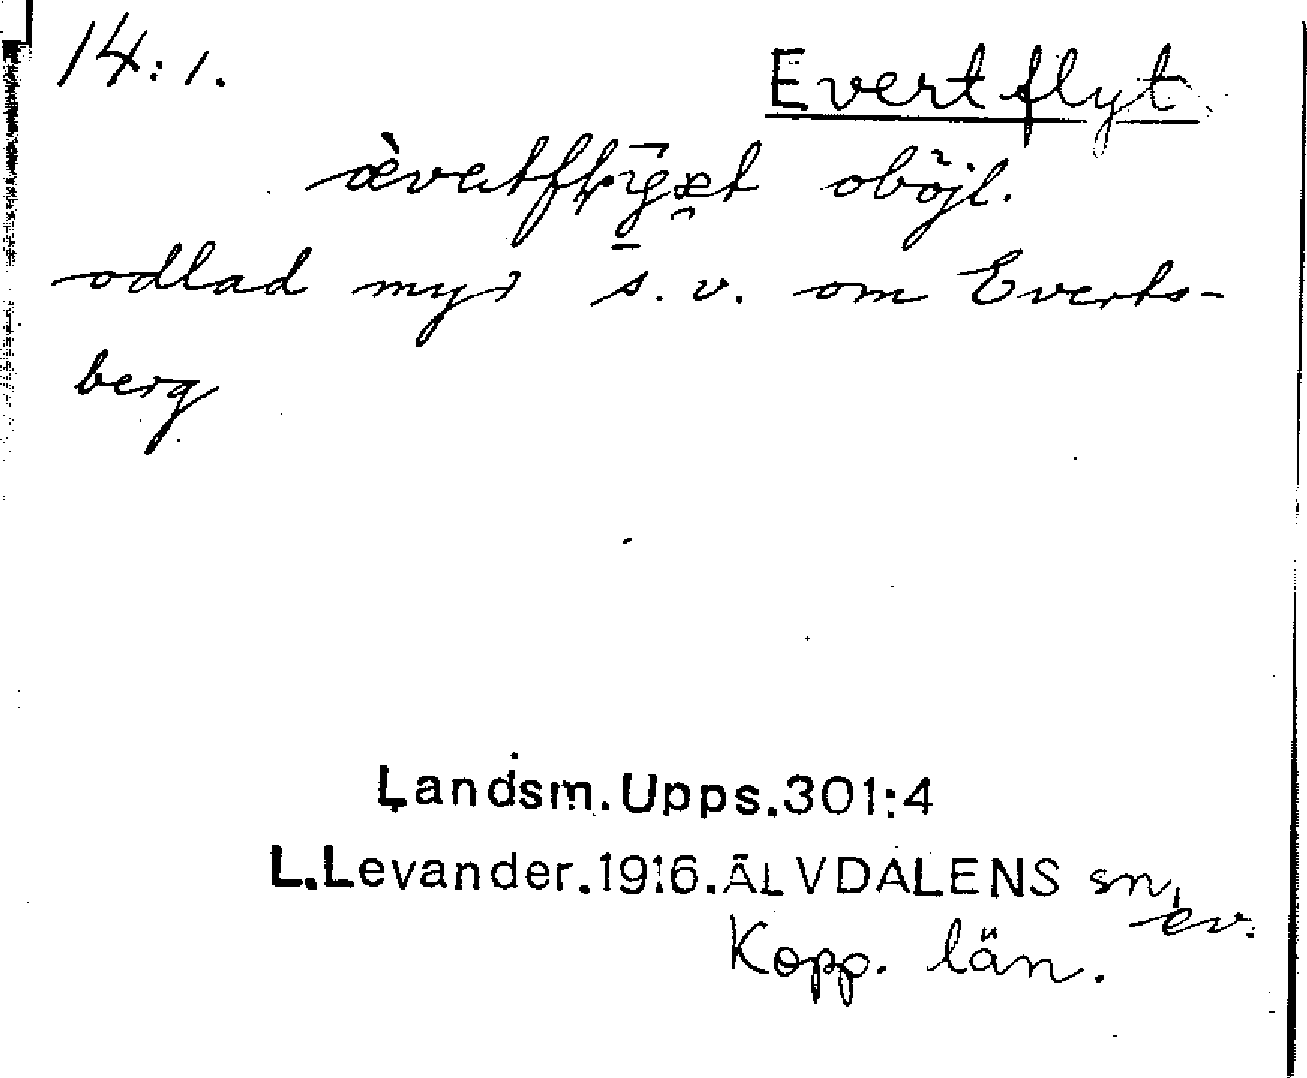 14:1.
Evertflyt
oböjl.
odlad myr s. v. om Everts-
berg
Landsm.Upps.301:4
L.Levander.1916.ÄLVDALENS sn,
ev.
Kopp. län.